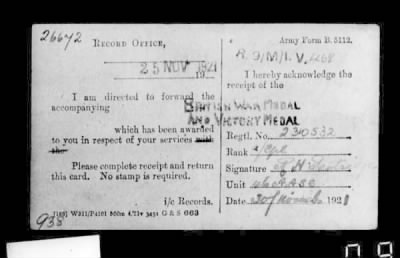 26672
RECORD OFFICE,
Army Form B. 5112.
25 NOV 1921
19
I hereby acknowledge the
receipt of the
I am directed to forward the
accompanying
BRITISH WAR MEDAL
AND VICTORY MEDAL
which has been awarded
to you in respect of your services with
the
Regtl. No. 230532
Rank
Please complete receipt and return
this card. No stamp is required.
Signature
Unit
i/c Records.
Date 1921
G & S 663
938